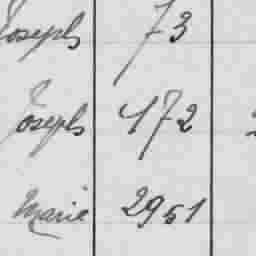 Joseph 73
Joseph 472
Marie 2951